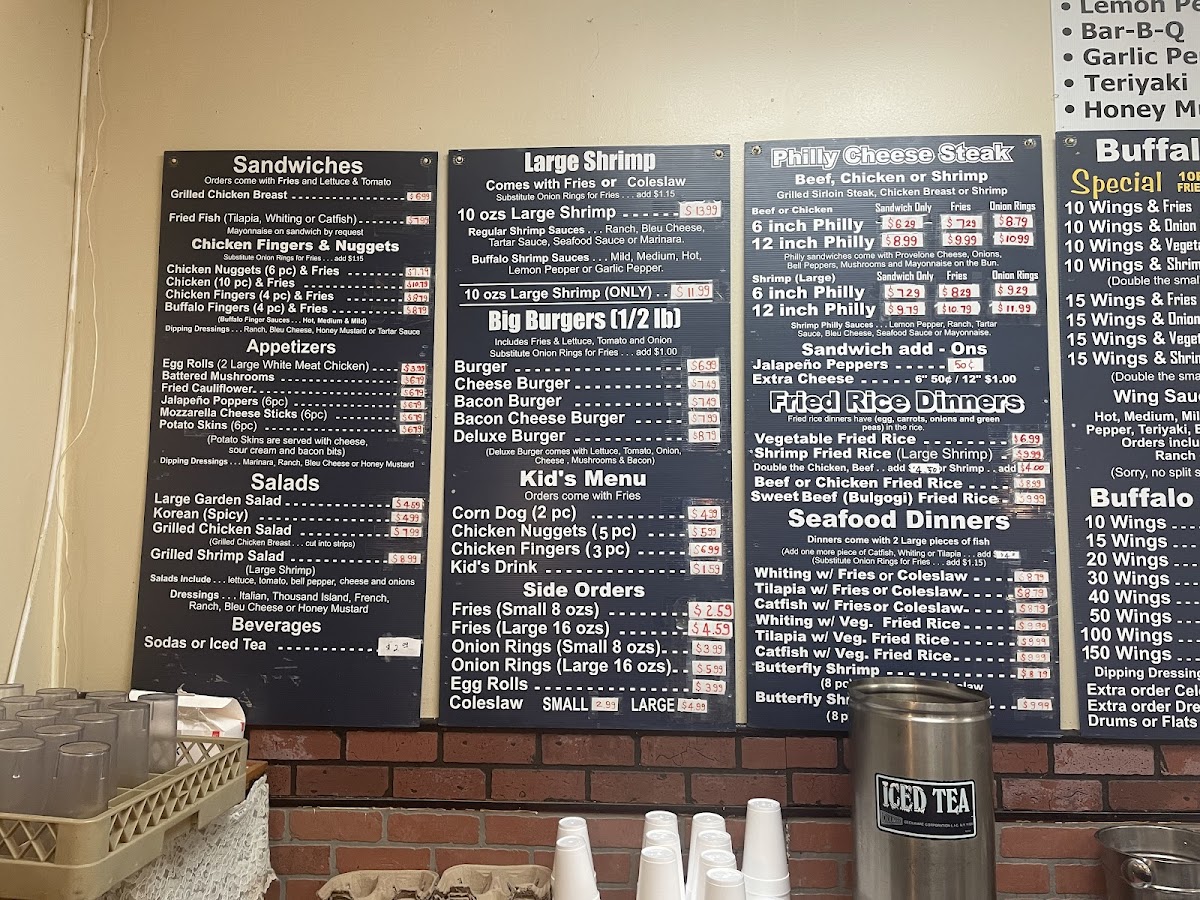 Sandwiches
Orders come with Fries and Lettuce & Tomato
Grilled Chicken Breast $6.99
Fried Fish (Tilapia, Whiting or Catfish) $7.99
Mayonnaise on sandwich by request
Chicken Fingers & Nuggets
Substitute Onion Rings for Fries . . . add $1.15
Chicken Nuggets (6 pc) & Fries
Chicken (10 pc) & Fries $10.79
Chicken Fingers (4 pc) & Fries $8.79
Buffalo Fingers (4 pc) & Fries $8.79
(Buffalo Finger Sauces . . . Hot, Medium & Mild)
Dipping Dressings . . . Ranch, Bleu Cheese, Honey Mustard or Tartar Sauce
Appetizers
Egg Rolls (2 Large White Meat Chicken) $3.99
Battered Mushrooms $6.79
Fried Cauliflower $6.79
Jalapeño Poppers (6pc) $6.79
Mozzarella Cheese Sticks (6pc) $6.79
Potato Skins (6pc) $6.79
(Potato Skins are served with cheese,
sour cream and bacon bits)
Dipping Dressings . . . Marinara, Ranch, Bleu Cheese or Honey Mustard
Salads
Large Garden Salad $4.59
Korean (Spicy) $4.99
Grilled Chicken Salad $7.99
(Grilled Chicken Breast . . . cut into strips)
Grilled Shrimp Salad $8.99
(Large Shrimp)
Salads Include . . . lettuce, tomato, bell pepper, cheese and onions
Dressings . . . Italian, Thousand Island, French,
Ranch, Bleu Cheese or Honey Mustard
Beverages
Sodas or Iced Tea
Large Shrimp
Comes with Fries or Coleslaw
Substitute Onion Rings for Fries . . . add $1.15
10 ozs Large Shrimp $13.99
Regular Shrimp Sauces . . . Ranch, Bleu Cheese,
Tartar Sauce, Seafood Sauce or Marinara.
Buffalo Shrimp Sauces . . . Mild, Medium, Hot,
Lemon Pepper or Garlic Pepper.
10 ozs Large Shrimp (ONLY) . . $11.99
Big Burgers (1/2 lb)
Includes Fries & Lettuce, Tomato and Onion
Substitute Onion Rings for Fries . . . add $1.00
Burger $6.99
Cheese Burger $7.49
Bacon Burger $7.49
Bacon Cheese Burger $7.99
Deluxe Burger $8.79
(Deluxe Burger comes with Lettuce, Tomato, Onion,
Cheese , Mushrooms & Bacon)
Kid's Menu
Orders come with Fries
Corn Dog (2 pc) $4.99
Chicken Nuggets (5 pc) $5.99
Chicken Fingers (3 pc) $6.99
Kid's Drink $1.59
Side Orders
Fries (Small 8 ozs) $2.59
Fries (Large 16 ozs) $4.59
Onion Rings (Small 8 ozs) $3.99
Onion Rings (Large 16 ozs) $5.99
Egg Rolls $3.99
Coleslaw SMALL 2.99 LARGE $4.99
Philly Cheese Steak
Beef, Chicken or Shrimp
Grilled Sirloin Steak, Chicken Breast or Shrimp
Beef or Chicken Sandwich Only Fries Onion Rings
6 inch Philly $6.29 $7.29 $8.79
12 inch Philly $8.99 $9.99 $10.99
Philly sandwiches come with Provelone Cheese, Onions,
Bell Peppers, Mushrooms and Mayonnaise on the Bun.
Shrimp (Large) Sandwich Only Fries Onion Rings
6 inch Philly $7.29 $8.29 $9.29
12 inch Philly $9.79 $10.79 $11.99
Shrimp Philly Sauces . . . Lemon Pepper, Ranch, Tartar
Sauce, Bleu Cheese, Seafood Sauce or Mayonnaise.
Sandwich add - Ons
Jalapeño Peppers 50¢
Extra Cheese 6" 50¢ / 12" $1.00
Fried Rice Dinners
Fried rice dinners have (egg, carrots, onions and green
peas) in the rice.
Vegetable Fried Rice $6.99
Shrimp Fried Rice (Large Shrimp) $9.99
Double the Chicken, Beef . . add or Shrimp . . add $4.00
Beef or Chicken Fried Rice $8.99
Sweet Beef (Bulgogi) Fried Rice $9.99
Seafood Dinners
Dinners come with 2 Large pieces of fish
(Add one more piece of Catfish, Whiting or Tilapia . . . add
(Substitute Onion Rings for Fries . . . add $1.15)
Whiting w/ Fries or Coleslaw $8.79
Tilapia w/ Fries or Coleslaw $8.79
Catfish w/ Fries or Coleslaw $8.79
Whiting w/ Veg. Fried Rice $9.99
Tilapia w/ Veg. Fried Rice $9.99
Catfish w/ Veg. Fried Rice $9.99
Butterfly Shrimp $8.79
(8 pc
Butterfly Shr $9.99
(8 p
• Lemon Pe
• Bar-B-Q
• Garlic Pe
• Teriyaki
• Honey Mu
Buffal
Special
10 Wings & Fries
10 Wings & Onion
10 Wings & Vegeta
10 Wings & Shrim
(Double the smal
15 Wings & Fries
15 Wings & Onion
15 Wings & Veget
15 Wings & Shrin
(Double the sma
Wing Sauc
Hot, Medium, Mil
Pepper, Teriyaki, B
Orders inclu
Ranch
(Sorry, no split s
Buffalo
10 Wings
15 Wings
20 Wings
30 Wings
40 Wings
50 Wings
100 Wings
150 Wings
Dipping Dressing
Extra order Cele
Extra order Dre
Drums or Flats
ICED TEA